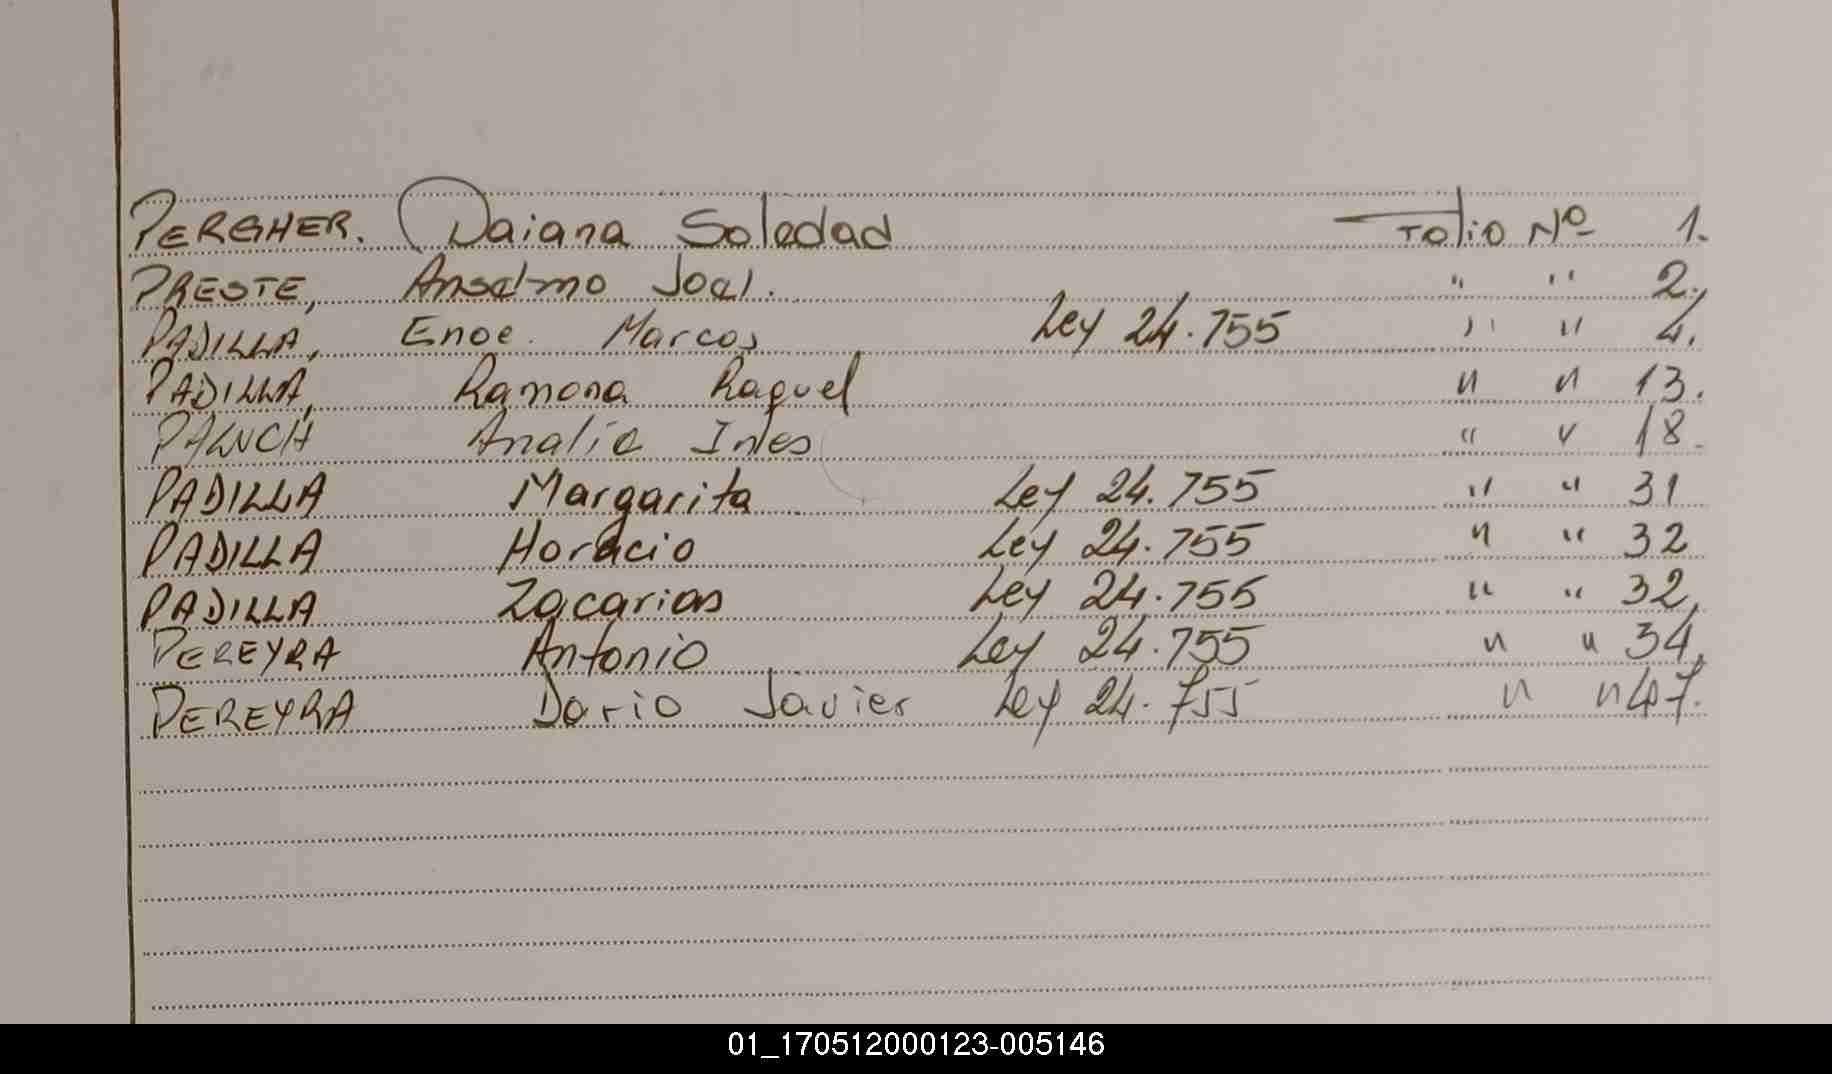 PERGHER. Daiana Soledad Folio Nº 1.
PRESTE, Anselmo Joel. " " 2.
PADILLA, Enoe. Marcos Ley 24.755 " " 4.
PADILLA, Ramona Raquel " " 13.
PALUCH Analia Ines " " 18.
PADILLA Margarita Ley 24.755 " " 31
PADILLA Horacio Ley 24.755 " " 32
PADILLA Zacarias Ley 24.755 " " 32,
PEREYRA Antonio Ley 24.755 " " 34,
PEREYRA Dario Javier Ley 24.755 " " 47.
01_170512000123-005146